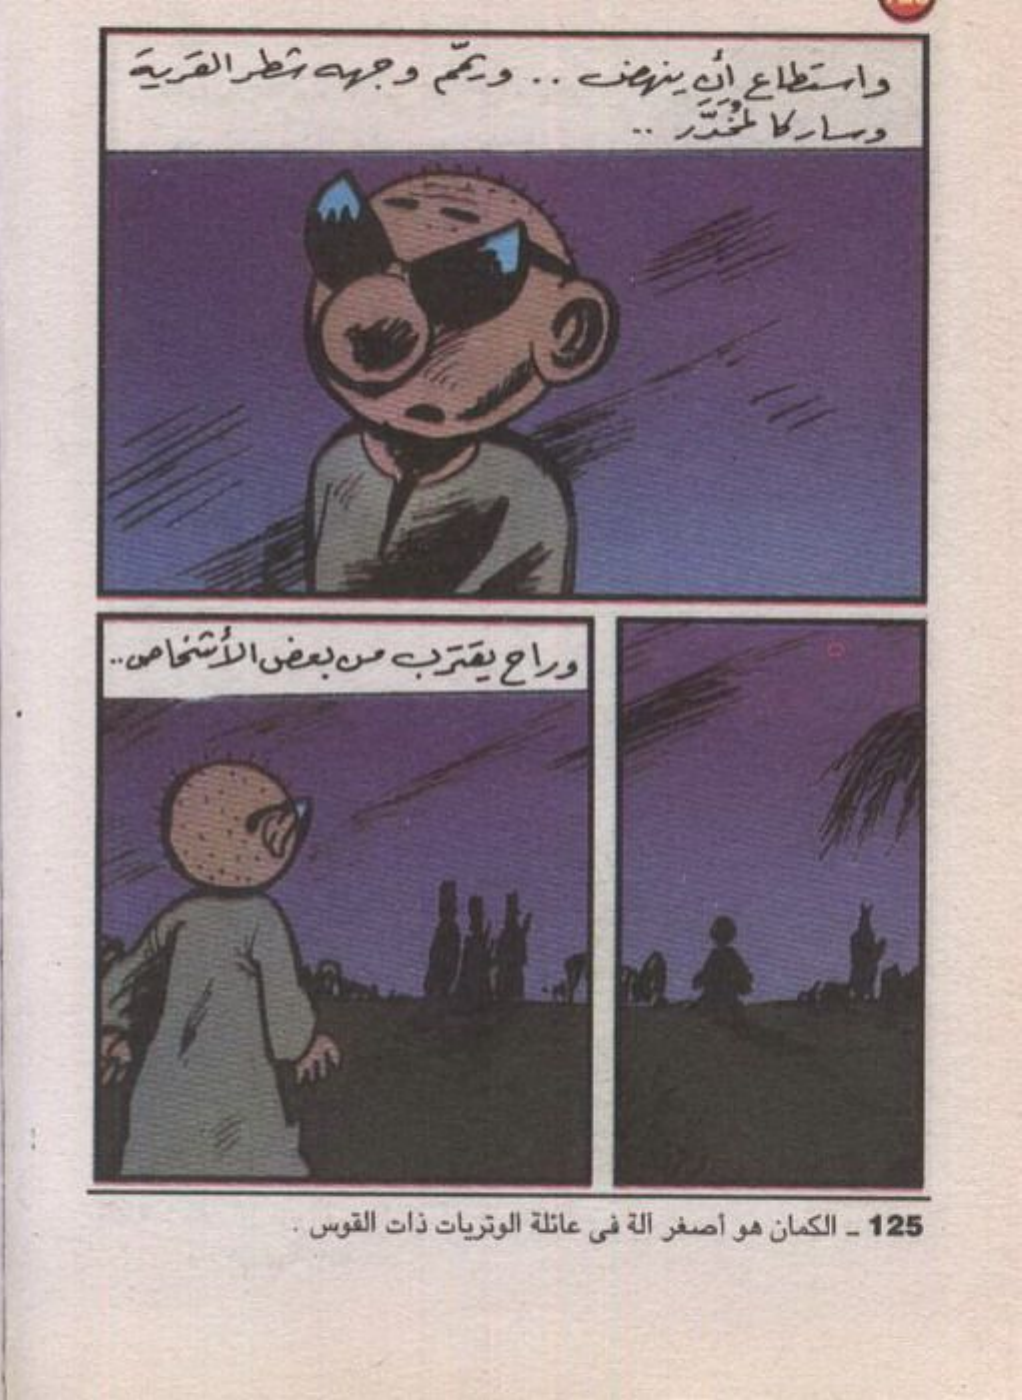 واستطاع أن ينهض .. ويمّم وجهه شطر القرية
وسار كالمُخَدَّر ..
وراح يقترب من بعض الأشخاص..
125 ــ الكمان هو أصغر آلة فى عائلة الوتريات ذات القوس .